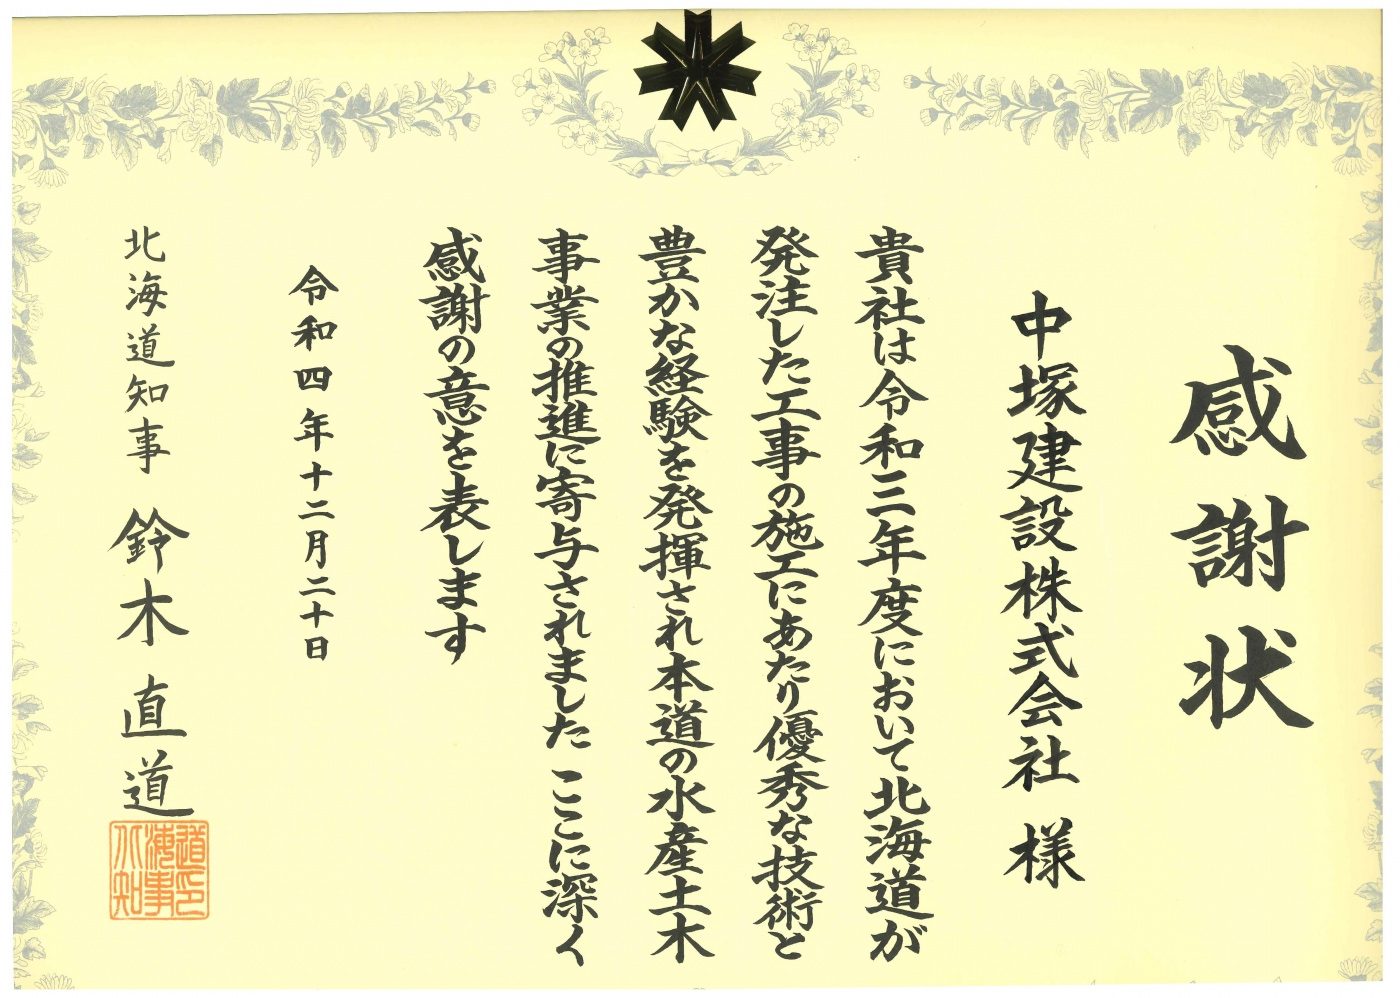 感謝状
中塚建設株式会社 様
貴社は令和三年度において北海道が
発注した工事の施工にあたり優秀な技術と
豊かな経験を発揮され本道の水産土木
事業の推進に寄与されました ここに深く
感謝の意を表します
令和四年十二月二十日
北海道知事 鈴木直道
北海道知事印